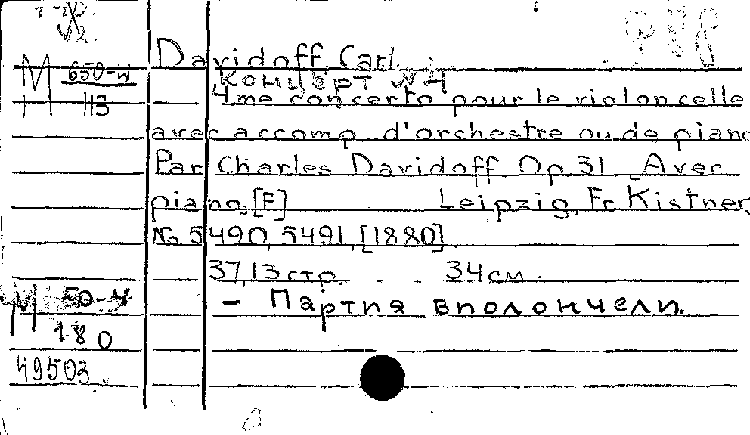 Davidoff Carl
Концерт № 4
M 650-и
113
4me concerto pour le violoncelle
avec accomp. d'orchestre ou de piano
Par Charles Davidoff Op. 31. Avec
piano. [F] Leipzig, Fr. Kistner,
№ 5490, 5491, [1880]
37, 13 стр. 34 см.
- Партия виолончели.
180
49503